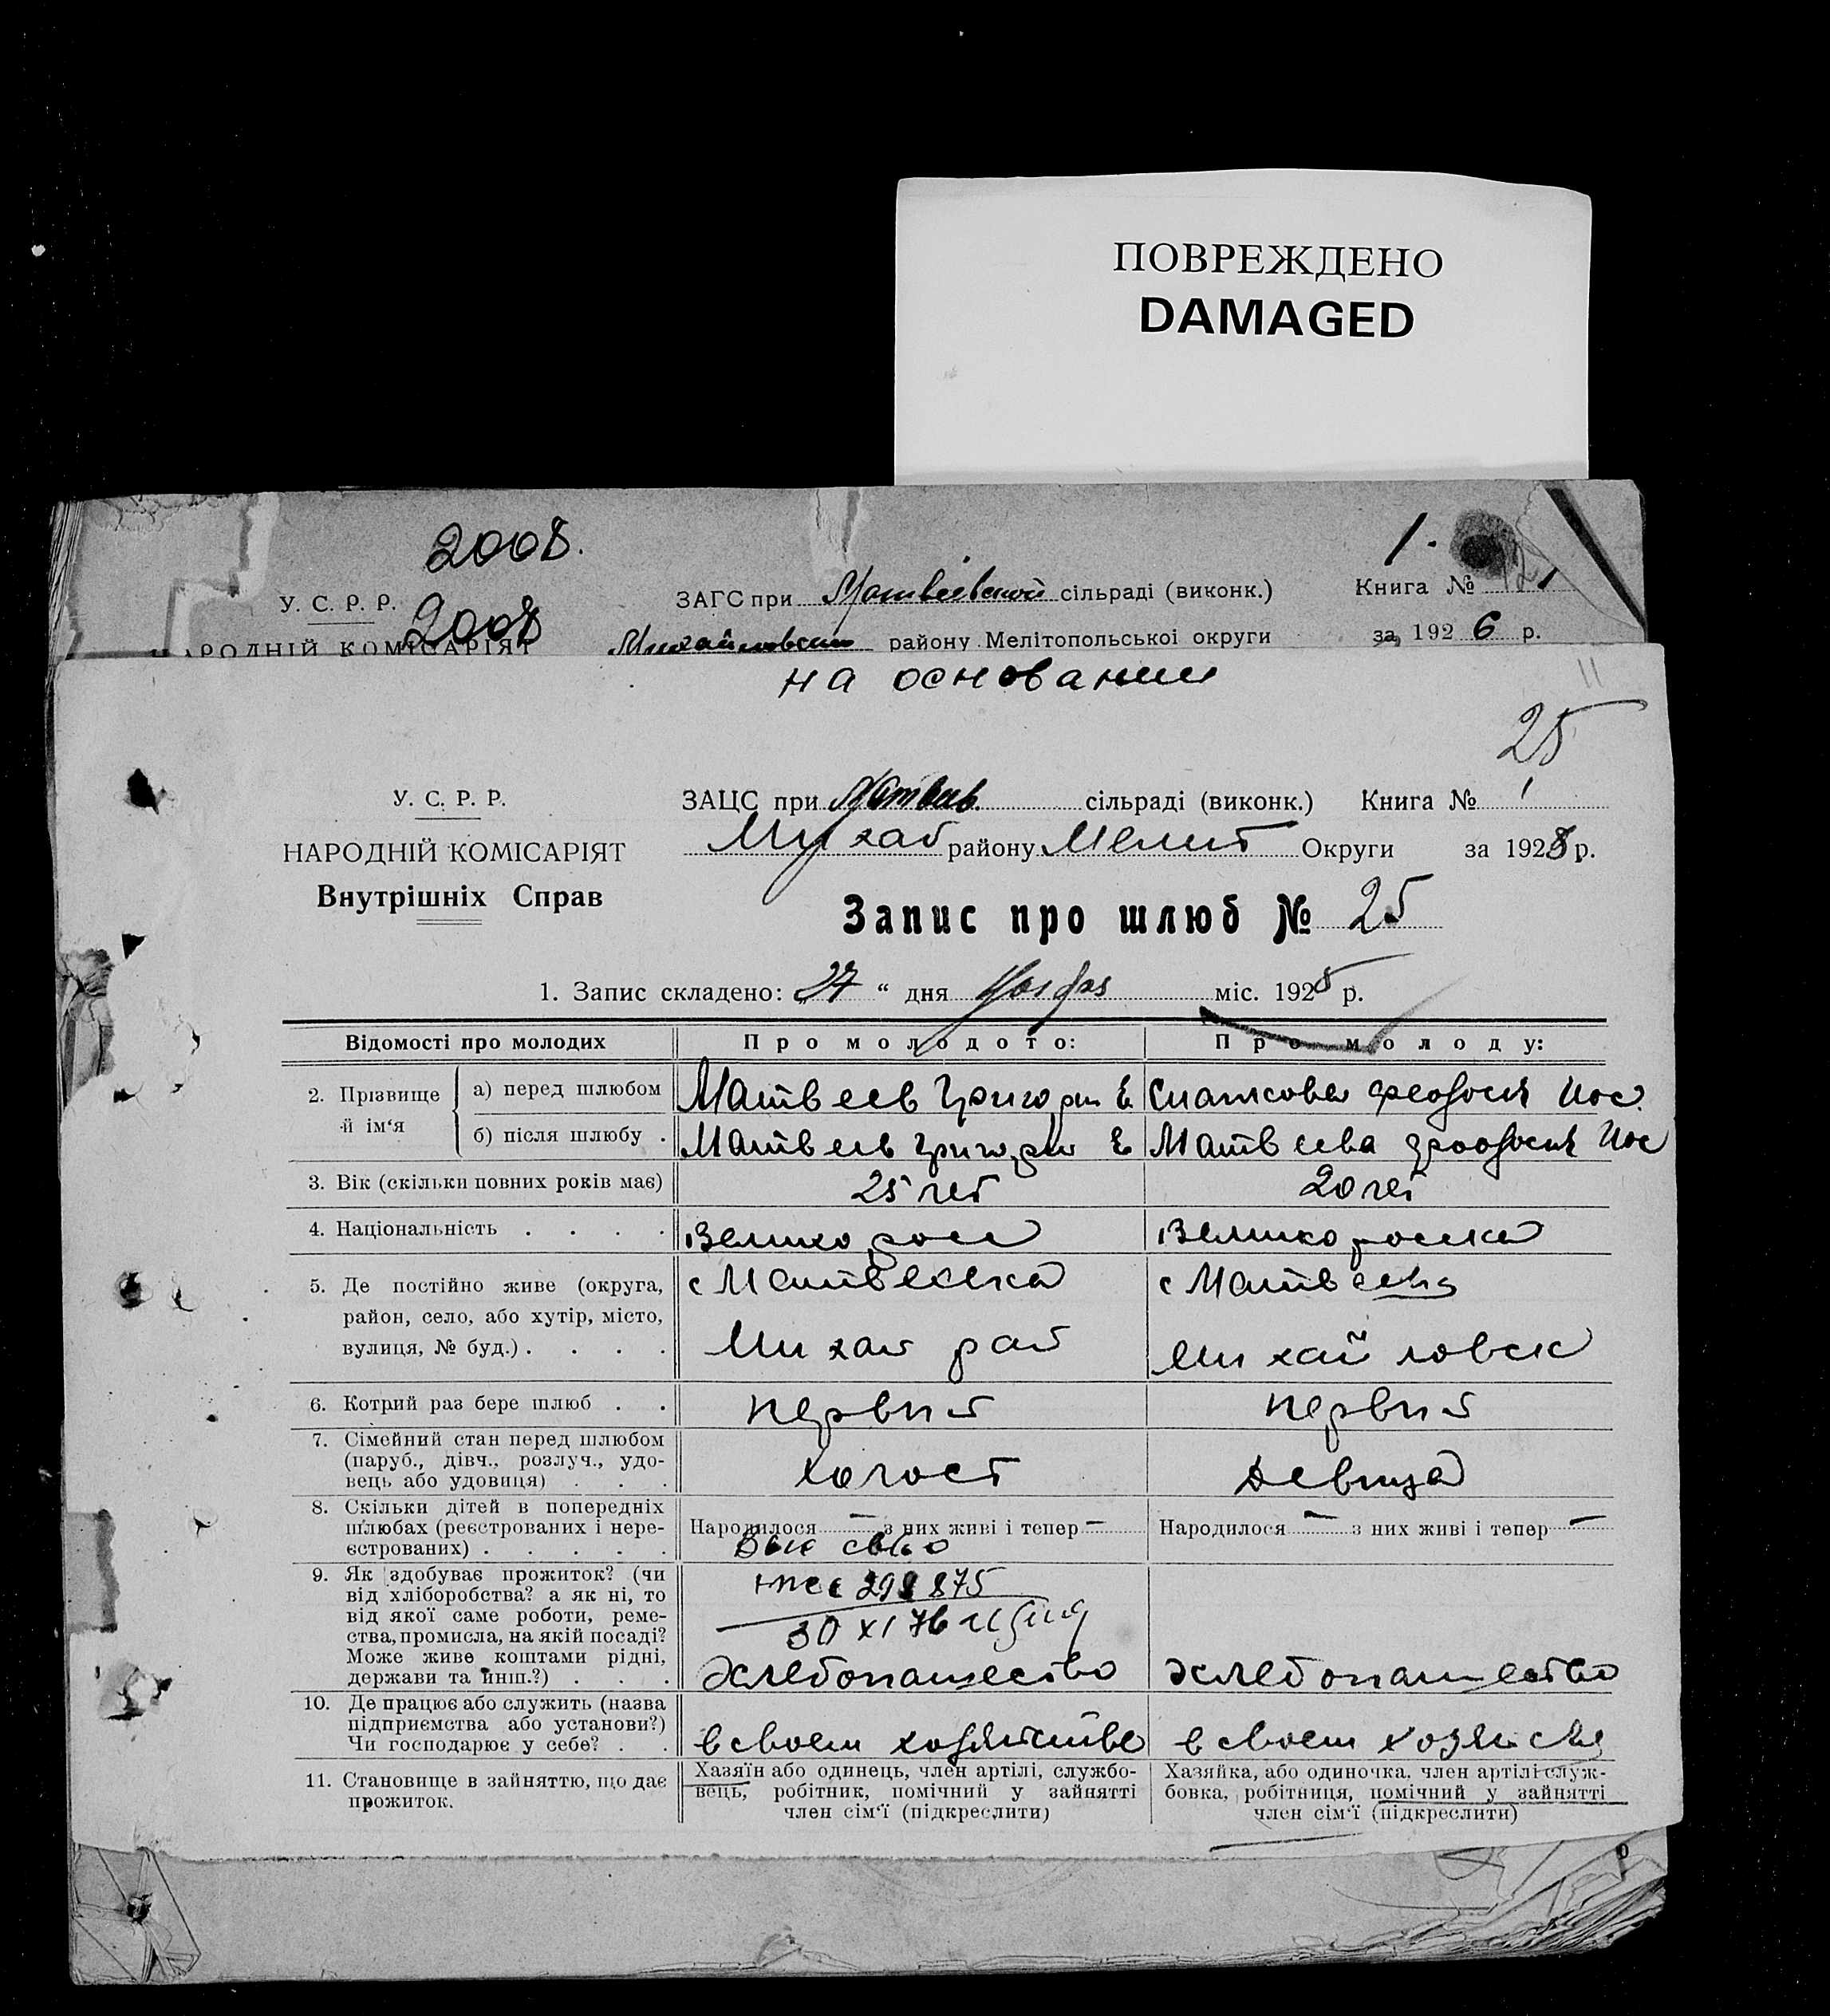 ПОВРЕЖДЕНО
DAMAGED
2008.
1.
У. С. Р. Р.
ЗАГС при Матвіевской сільраді (виконк.)
Книга № 1
2008
НАРОДНІЙ КОМІСАРІЯТ
Михайловский району Мелітопольської округи
за 1926 р.
на основании
11
25
У. С. Р. Р.
ЗАЦС при Матвеев. сільраді (виконк.) Книга № 1
НАРОДНІЙ КОМІСАРІЯТ
Михай району Мелит Округи за 1928 р.
Внутрішніх Справ
Запис про шлюб № 25
1. Запис складено: „27“ дня Ноября міс. 1928 р.
Відомості про молодих
Про молодого:
Про молоду:
2. Прізвище й ім‘я
а) перед шлюбом
Матвеев Григорий Е
Феодосия Иос.
б) після шлюбу .
Матвеев Григорий Е
Матвеева Феодосия Иос
3. Вік (скільки повних років має)
25 лет
20 лет
4. Національність . . . .
Великоросс
Великоросска
5. Де постійно живе (округа,
район, село, або хутір, місто,
вулиця, № буд.) . . . .
с Матвеевка
Михай рай
с Матвеевка
Михайловск
6. Котрий раз бере шлюб . .
первий
первий
7. Сімейний стан перед шлюбом
(паруб., дівч., розлуч., удо-
вець або удовиця) . . .
холост
девица
8. Скільки дітей в попередніх
шлюбах (реєстрованих і нере-
єстрованих) . . . . .
Народилося — з них живі і тепер —
Народилося — з них живі і тепер —
9. Як здобуває прожиток? (чи
від хліборобства? а як ні, то
від якої саме роботи, реме-
ства, промисла, на якій посаді?
Може живе коштами рідні,
держави та йнш.?) . . .
св-во
298875
30 XI 76
Хлебопашество
Хлебопашество
10. Де працює або служить (назва
підприємства або установи?)
Чи господарює у себе? . .
в своем хозяйстве
в своем хозяйстве
11. Становище в зайняттю, що дає
прожиток.
Хазяїн або одинець, член артілі, службо-
вець, робітник, помічний у зайнятті
член сім‘ї (підкреслити)
Хазяйка, або одиночка, член артілі служ-
бовка, робітниця, помічний у зайнятті
член сім‘ї (підкреслити)